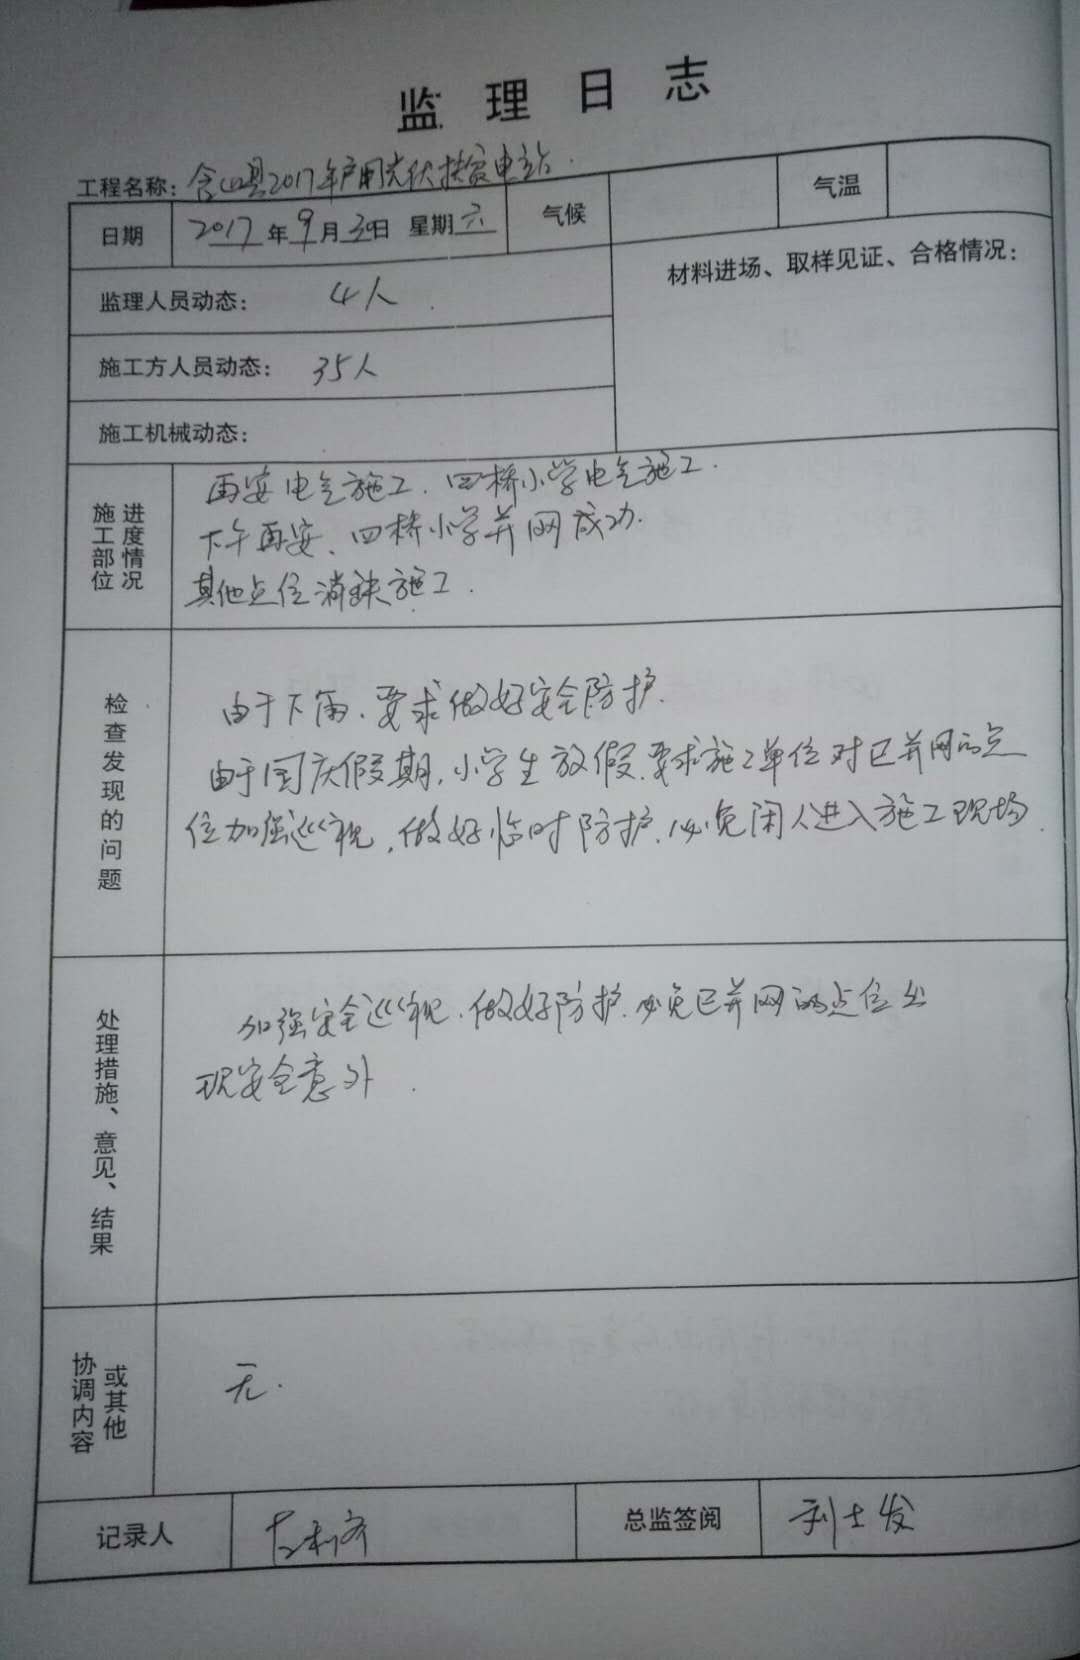 监理日志
工程名称：含山县2017年户用光伏扶贫电站.
日期 2017年9月30日 星期六 气候 气温
监理人员动态： 4人. 材料进场、取样见证、合格情况：
施工方人员动态： 35人
施工机械动态：
施工部位 进度情况
再安电气施工. 四桥小学电气施工.
下午再安、四桥小学并网成功.
其他点位消缺施工.
检查发现的问题
由于下雨、要求做好安全防护.
由于国庆假期, 小学生放假, 要求施工单位对已并网的点
位加强巡视, 做好临时防护, 必免闲人进入施工现场.
处理措施、意见、结果
加强安全巡视. 做好防护. 必免已并网的点位出
现安全意外.
协调内容 或其他
无.
记录人 总监签阅